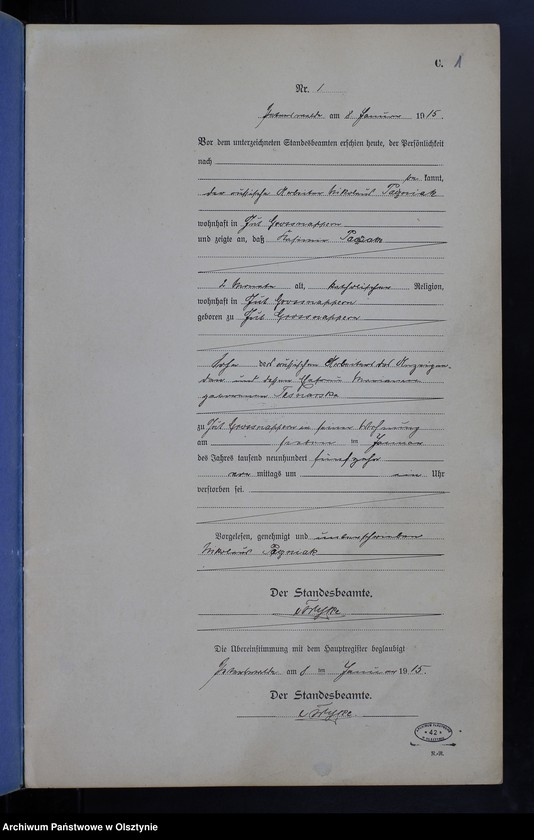 C. 1
Nr. 1
am 8 Januar 1915.
Vor dem unterzeichneten Standesbeamten erschien heute, der Persönlichkeit
nach
be kannt,
der russische Arbeiter Nikolaus Pazniak
wohnhaft in Gut Grossnappern
und zeigte an, daß Kasimir
2 Monate alt, katholischer Religion,
wohnhaft in Gut Grossnappern
geboren zu Gut Grossnappern
Sohn des russischen Arbeiters des Anzeigen-
den und dessen Ehefrau
geborenen
zu Gut Grossnappern in seiner Wohnung
am sieben im Januar
des Jahres tausend neunhundert fünfzehn
vor mittags um ein Uhr
verstorben sei.
Vorgelesen, genehmigt und unterschrieben
Nikolaus Pazniak
Der Standesbeamte.
Die Übereinstimmung mit dem Hauptregister beglaubigt
am 8 ten Januar 1915.
Der Standesbeamte.
42
Archiwum Państwowe w Olsztynie